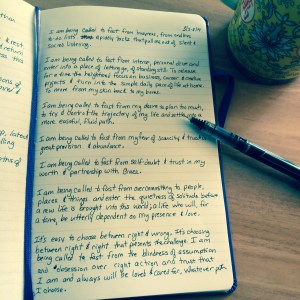 8.25.14
I am being called to fast from busyness, from endless
to do lists
sacred listening.
I am being called to fast from intense, personal drive and
enter into a place of letting go, of shedding old. To release
for a time the heightened focus on business, career & creative
projects & turn into the simple daily pace of life at home.
To move from my skin back to my bone.
I am being called to fast from my desire to plan too much,
to try & control the trajectory of my life and settle into a
more restful, fluid path.
I am being called to fast from my fear of scarcity & trust in
great provision & abundance.
I am being called to fast from self-doubt & trust in my
worth & partnership with Grace.
I am being called to fast from overcommitting to people,
places & things and enter the quietness of solitude before
a new life is brought into this world; a life who will, for
a time, be utterly dependent on my presence & love.
It's easy to choose between right & wrong. It's choosing
between right & right that presents the challenge. I am
being called to fast from the blindness of assumption
and obsession over right action, and trust that
I am and always will be loved & cared for, whatever path
I choose.